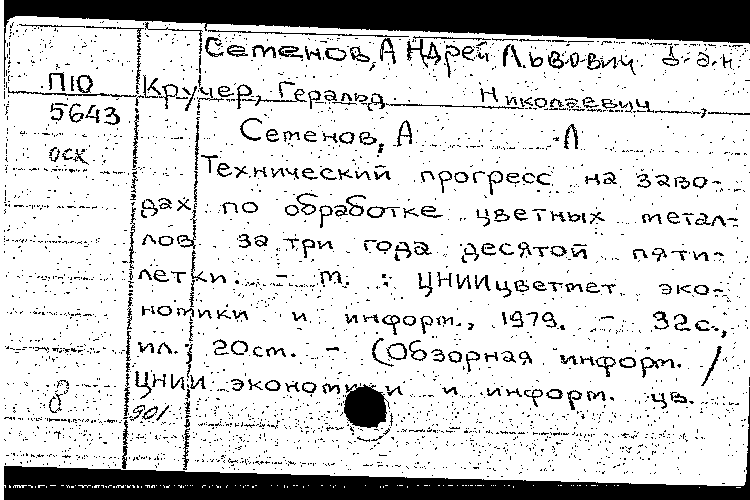 Семенов, Андрей Львович д-э.н.
П10 Кручер, Геральд Николаевич,
5643 Семенов, А Л
оск Технический прогресс на заво-
дах по обработке цветных метал-
лов за три года десятой пяти-
летки. - м. : ЦНИИцветмет эко-
номики и информ., 1979. - 32с.,
ил.; 20см. - (Обзорная информ. /
8 ЦНИИ экономики и информ. цв.
901